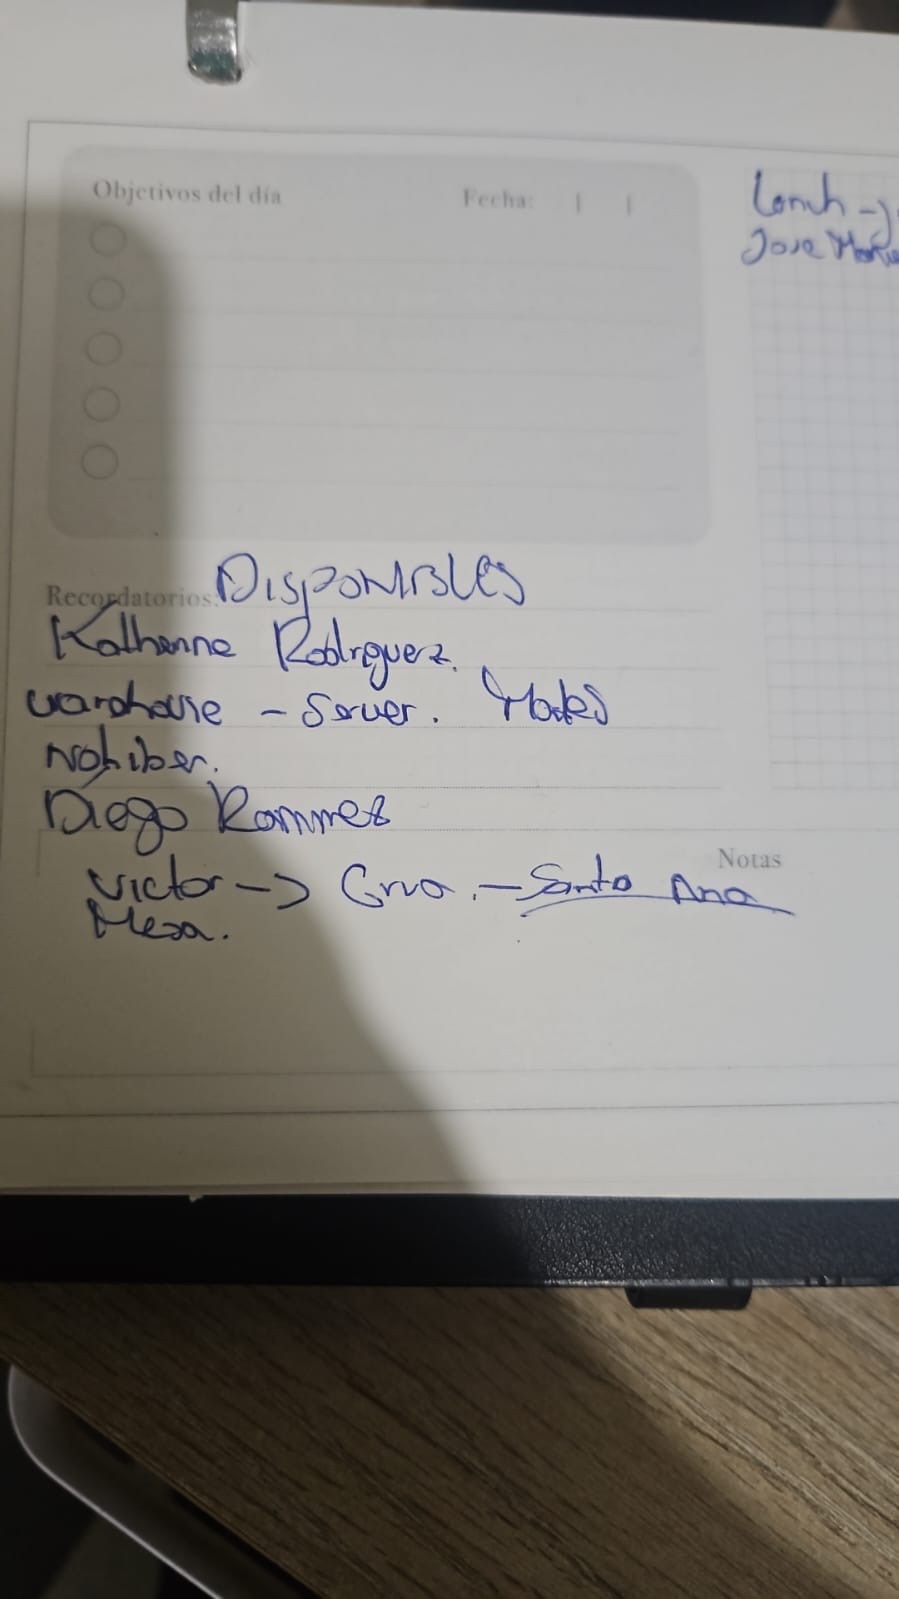 Objetivos del día Fecha: | |
Lonch ->
Jose
Recordatorios: Disponibles
Katherine Rodriguez.
warehouse - Server.
Nohiber.
Diego Ramirez
Notas
Victor -> Grua. - Santa Ana
Meza.